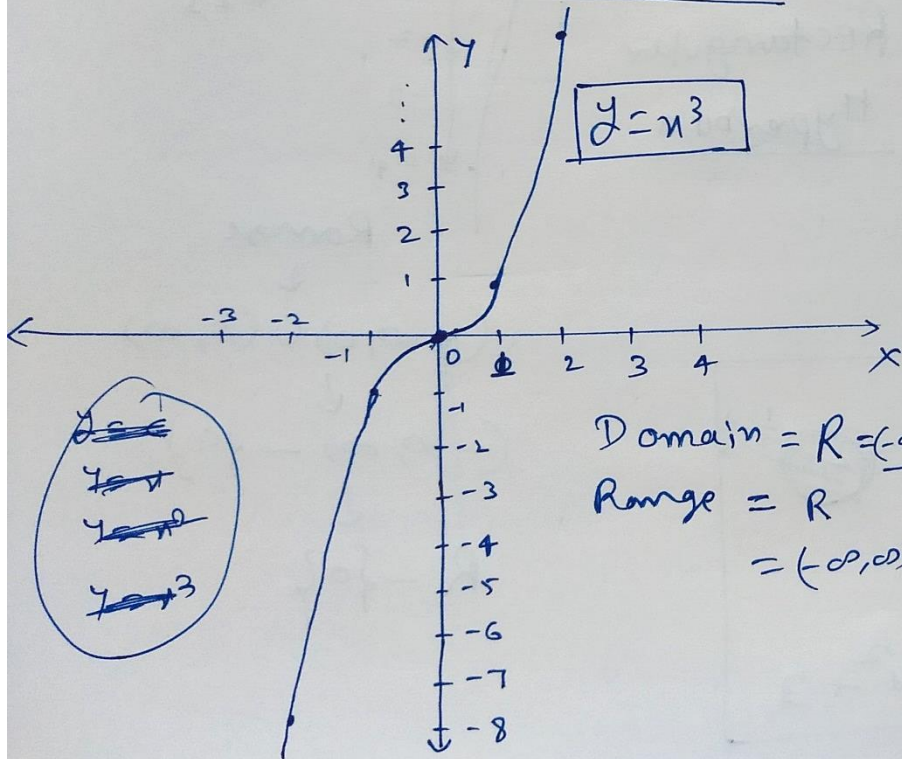 Y
y = x³
4
3
2
1
-3 -2
-1 0 1 2 3 4
X
-1
-2
-3
-4
-5
-6
-7
-8
Domain = R = (-
Range = R
= (-∞, ∞